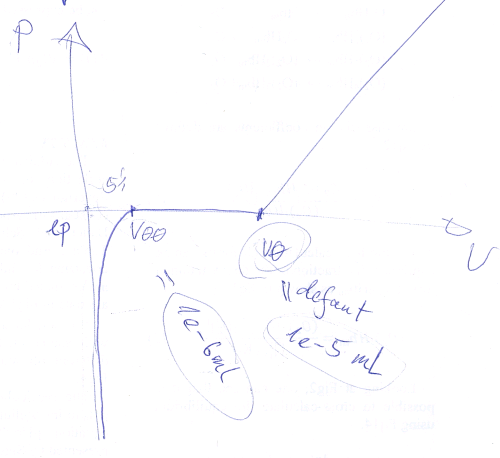 P
lp
V00
V0
V
= 1e-6 mL
= defaut
1e-5 mL